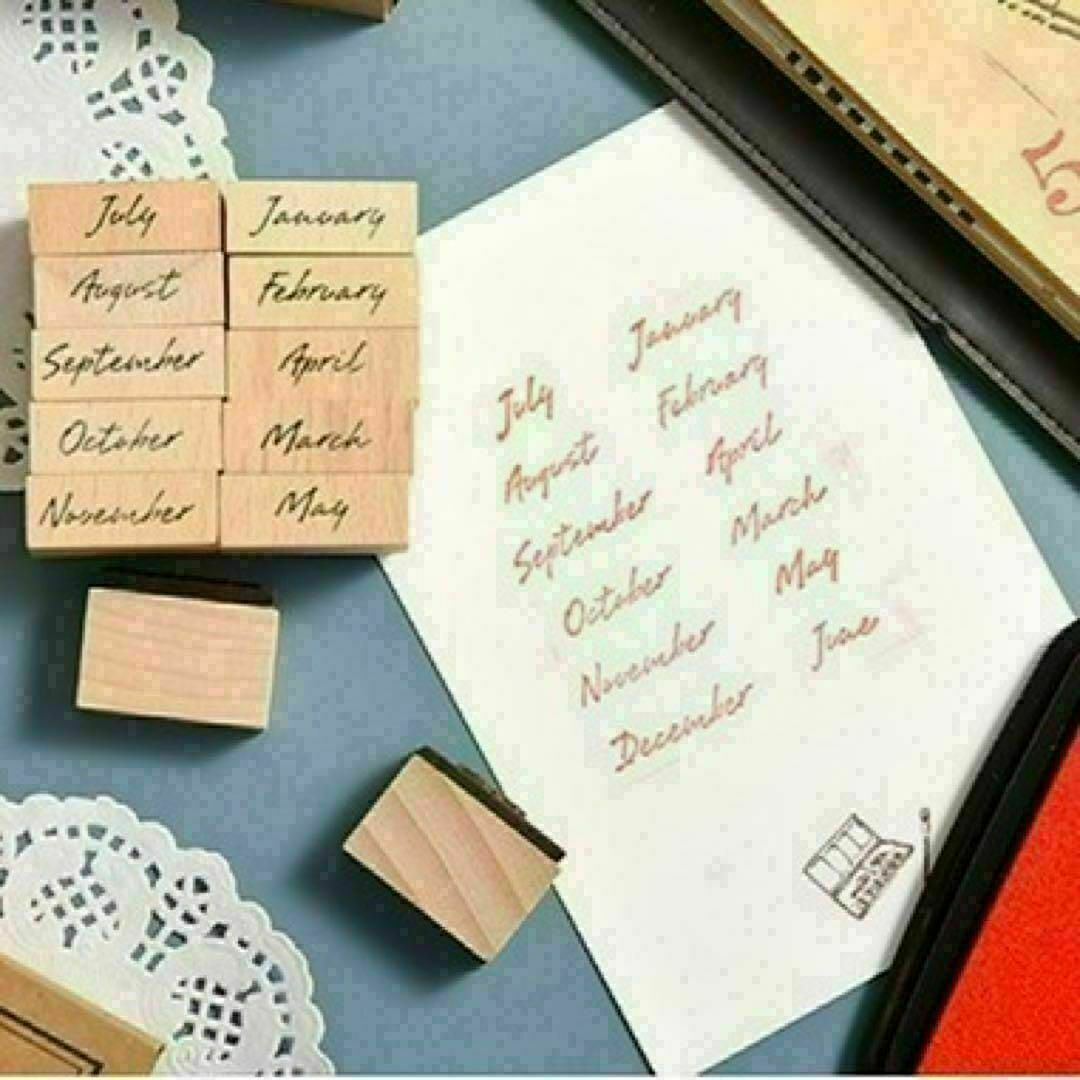 July
January
August
February
September
April
October
March
November
May
January
July
February
August
April
September
March
October
May
November
June
December